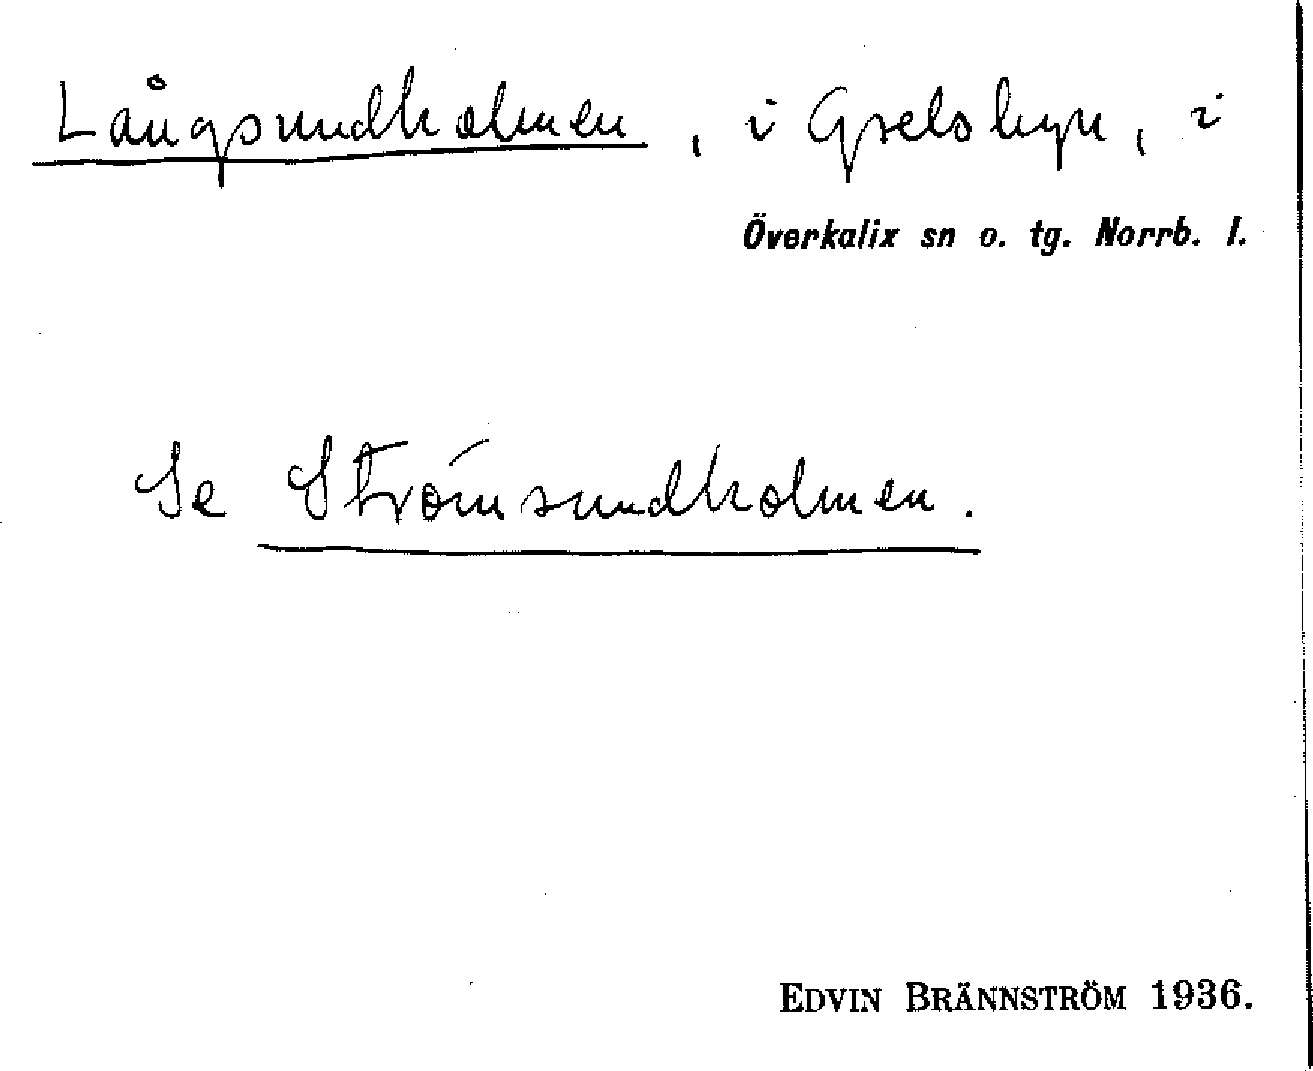 Långsundholmen, i Grelsbyn, i
Överkalix sn o. tg. Norrb. l.
Se Strömsundholmen.
EDVIN BRÄNNSTRÖM 1936.